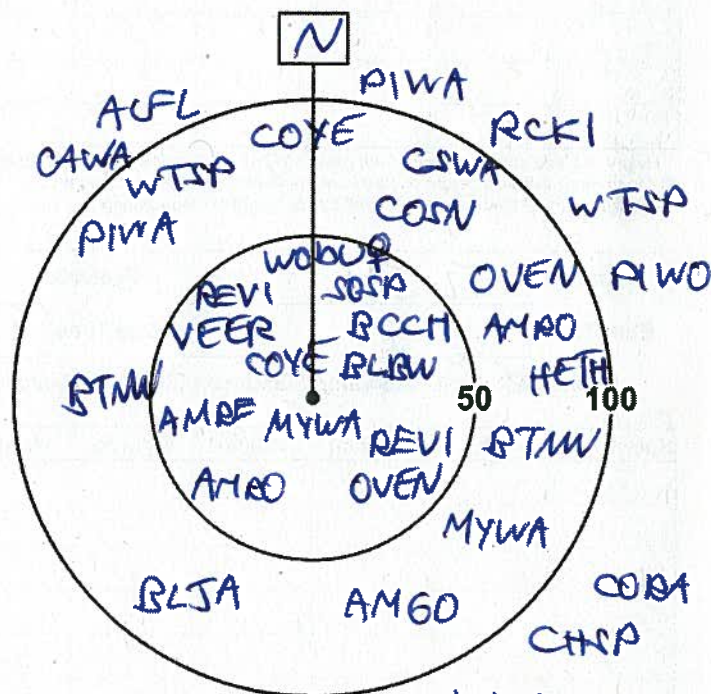 N
PIWA
ALFL
COYE
RCKI
CAWA
CSWA
WTSP
COSN
WTSP
PIWA
WODU♀
OVEN PIWO
REVI SOSP
VEER BCCH AMRO
COYE BLBW
HETH
BTNW
50 100
AMRE MYWA
REVI BTNW
AMRO OVEN
MYWA
BLJA AMGO CORA
CHSP